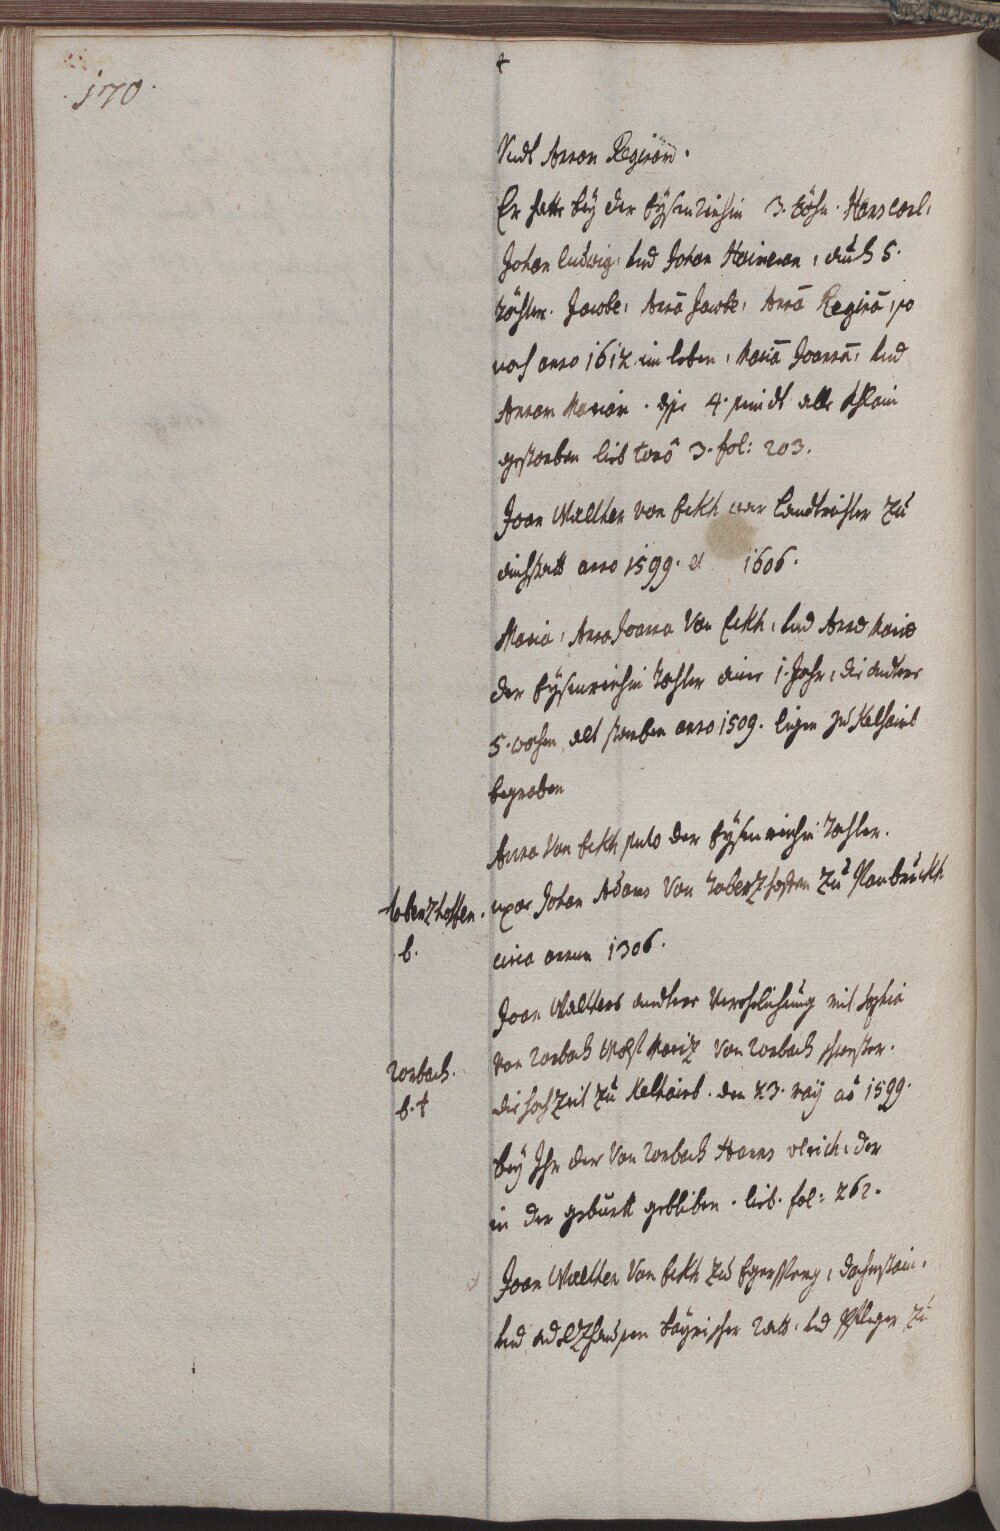 170.
Vndt Annam Reginam.
Er hatte bey der Eysenreichin 3. Söhn. Hans Carl,
Johan Ludwig, vnd Johan Hainrian, auch 5.
Töchter. Jacobe, Anā Jacobe, Anā Reginā, so
noch anno 1612 im leben, Mariā Joannā, vnd
Annam Mariam. dise 4. seindt alle Khlain
gestorben lieb tomo 3. fol: 203.
Joan Walther von Eckh war Landtrichter zu
aichstatt anno 1599. et 1606.
Maria, Anna Joanna Von Eckh, vnd Anna Maria
der Eysenreichin Tochter aine 1. Jahr, die andtere
5. wochen alt storben anno 1509. ligen zu Kelhaimb
begraben
Anna Von Eckh auch der Eysenreichin Tochter.
Tobenzhoffen.
b.
uxor Johan Adams Von Tobenzhoffen zu Neubruckh
circa annum 1306.
Joan Walthers andtere Verehelichung mit Sophia
Rorbach.
b. +
Von Rorbach Wolf Moriz Von Rorbach schwester.
die hochzeit zu Kelhaimb. den 23. May aō 1599.
bey Ihr der Von Rorbach Hanns vlrich, der
in der geburtt gebliben. lieb. fol: 262.
Joan Walther Von Eckh zu Egersperg, Dachenstain,
vnd adelzhausen bayrischer Rath, vnd Pfleger zu